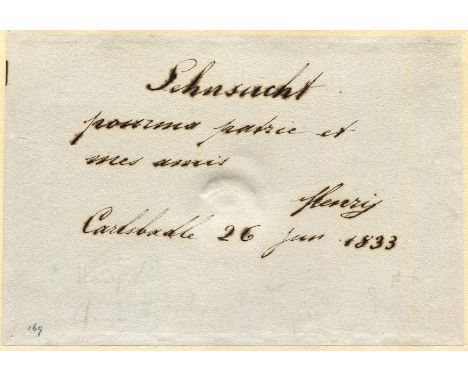 Sehnsucht
pour ma patrie et
mes amis
Henry
Carlsbadle 26 Jun 1833
169